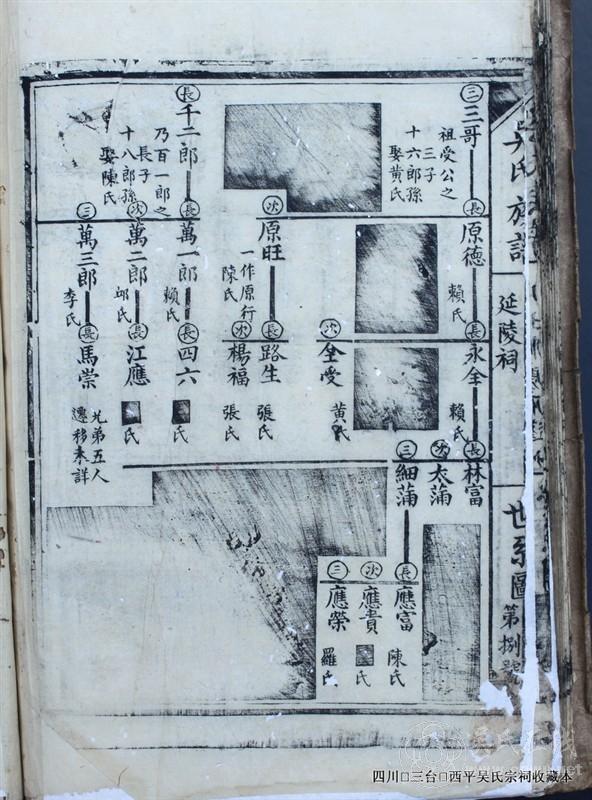 吳氏族譜
延陵祠
世系圖
第捌號
三 三哥
祖受公之
三子
十六郎孫
娶黃氏
長 原德
賴氏
長 永全
賴氏
長 林富
次 太蒲
三 細蒲
長 應富
陳氏
次 應貴
氏
三 應榮
羅氏
次 全受
黃氏
次 原旺
一作原行
陳氏
長 路生
張氏
次 楊福
張氏
長 千二郎
乃百一郎之
長子
十八郎孫
娶陳氏
長 萬一郎
賴氏
長 四六
氏
次 萬二郎
邱氏
長 江應
氏
三 萬三郎
李氏
長 馬崇
兄弟五人
遷移未詳
四川□三台□西平吴氏宗祠收藏本